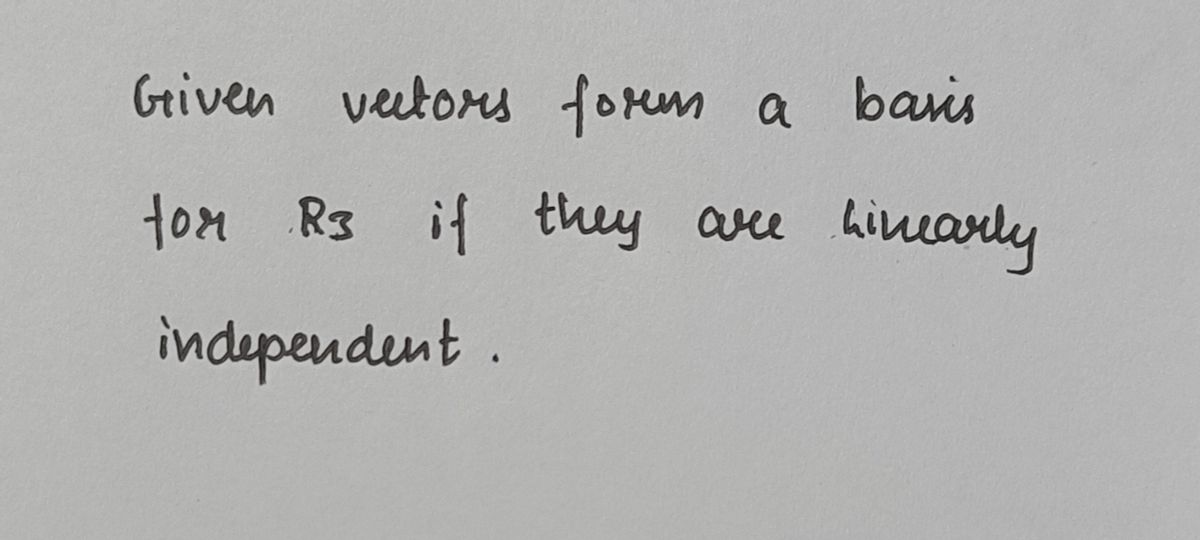 Given vectors form a basis
for R3 if they are linearly
independent.